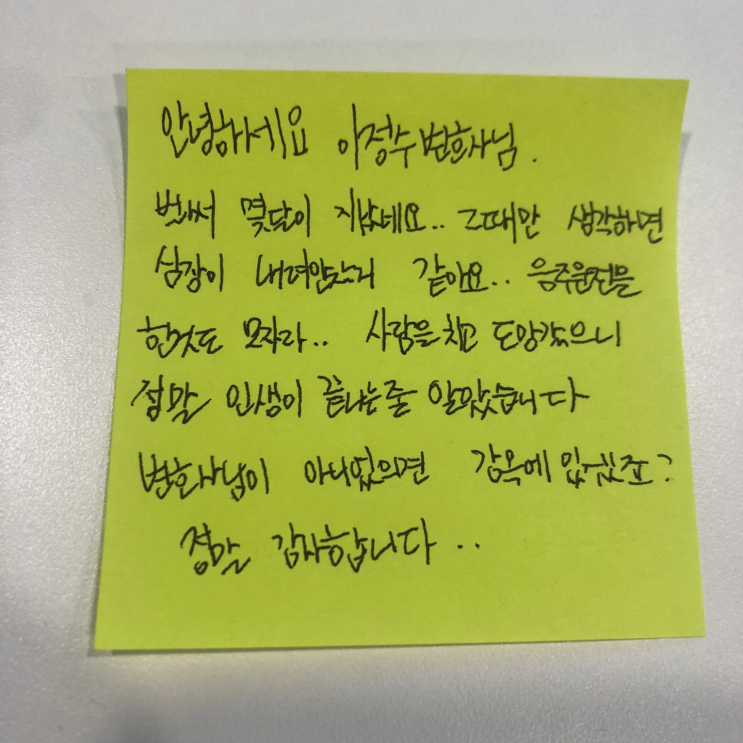 안녕하세요 이정수 변호사님.
벌써 몇달이 지났네요.. 그때만 생각하면
심장이 내려앉는거 같아요.. 음주운전을
한것도 모자라.. 사람을 치고 도망갔으니
정말 인생이 끝나는줄 알았습니다
변호사님이 아니었으면 감옥에 있겠죠?
정말 감사합니다..